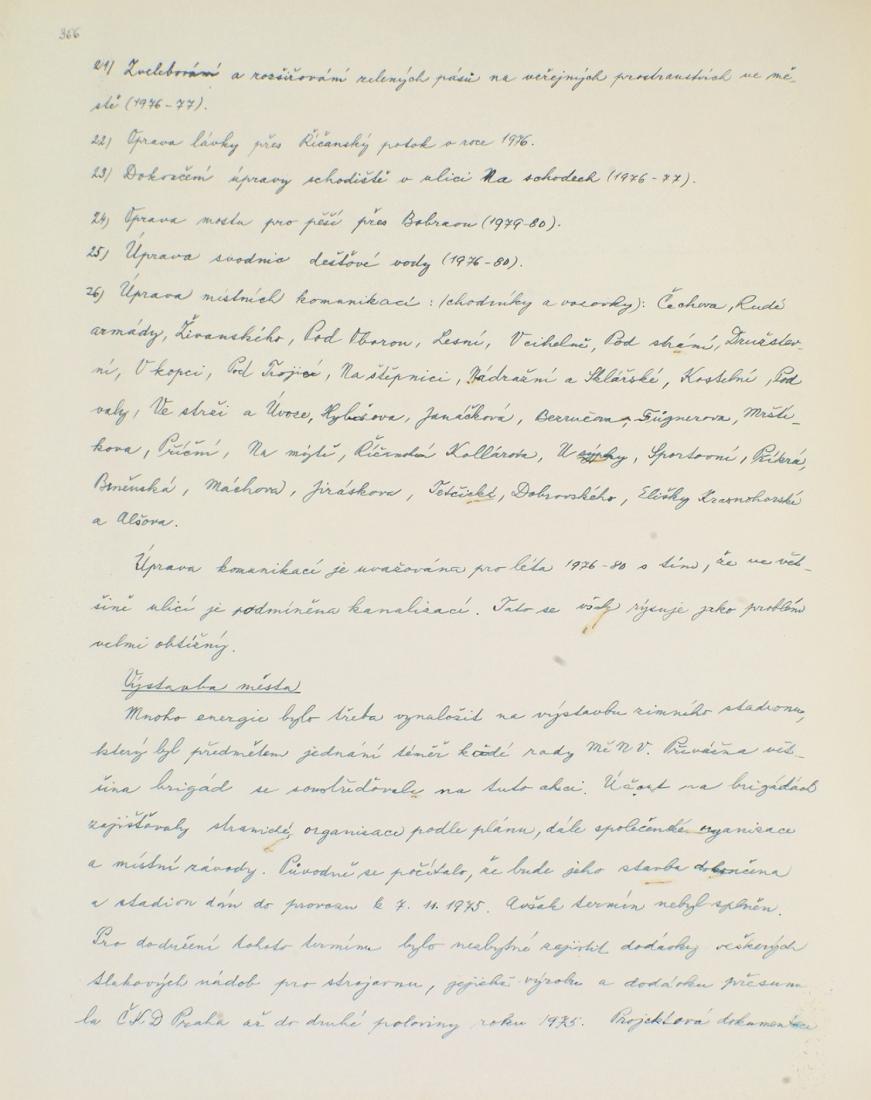 366
21) Zvelebování a rozšiřování zelených pásů na veřejných prostranstvích ve mě-
stě (1976-77).
22) Oprava lávky přes Říčanský potok v roce 1976.
23) Dokončení úpravy schodiště v ulici Na schodech (1976-77).
24) Oprava mostu pro pěší přes Bobravu (1979-80).
25) Úprava svodnic dešťové vody (1976-80).
26) Úprava místních komunikací: (chodníky a vozovky): Čechova, Rudé
armády, Živanského, Pod Oborou, Lesní, V cihelně, Pod strání, Družstev-
ní, V kopci, Pod Trojicí, Na štěpnici, Nádražní a Sklářské, Kostelní, Pod
valy, Ve strži a Úvoze, Hybešova, Janáčková, Bezručova, Fügnerova, Mrští-
kova, Příční, Na mýtě, Říčanská Kollárova, U sýpky, Sportovní, Příkrá,
Brněnská, Máchova, Jiráskova, Tetčická, Dobrovského, Elišky Krasnohorské
a Alšova.
Úprava komunikací je uvažována pro léta 1976-80 s tím, že ve vět-
šině ulicí je podmíněna kanalizací. Tato se všaky rýsuje jako problém
velmi obtížný.
Výstavba města
Mnoho energie bylo třeba vynaložit na výstavbu zimního stadionu,
který byl předmětem jednání téměř každé rady MěNV. Převážná vět-
šina brigád se soustřeďovala na tuto akci. Účast na brigádách
zajišťovaly stranické organisace podle plánu, dále společenské organisace
a místní závody. Původně se počítalo, že bude jeho stavba dokončena
a stadion dán do provozu k 7. 11. 1975. Avšak termín nebyl splněn.
Pro dodržení tohoto termínu bylo nezbytné zajistit dodávky veškerých
tlakových nádob pro strojovnu, jejichž výrobu a dodávku přesunu
la ČKD Praha až do druhé poloviny roku 1975. Projektová dokumentace